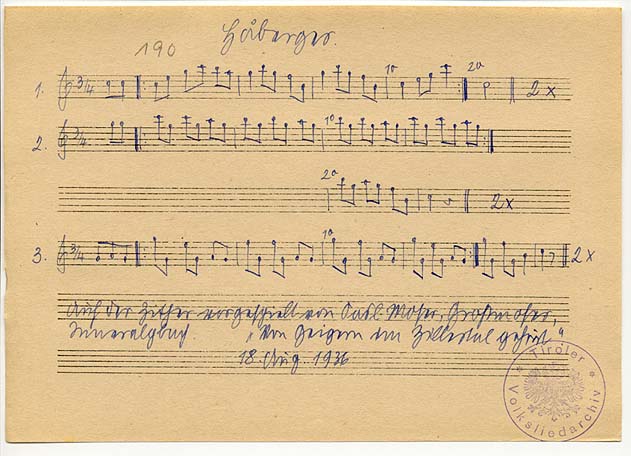 190 Håberger.
1. 3/4 1a 2a 2 x
2. 3/4 1a
2a 2 x
3. 3/4 1a 2 x
Auf der Zither vorgespielt von Karl Moser, Großmoser,
Inneralpbach. "Von Geigern im Zillertal gehört."
18. Aug. 1936
Tiroler
Volksliedarchiv